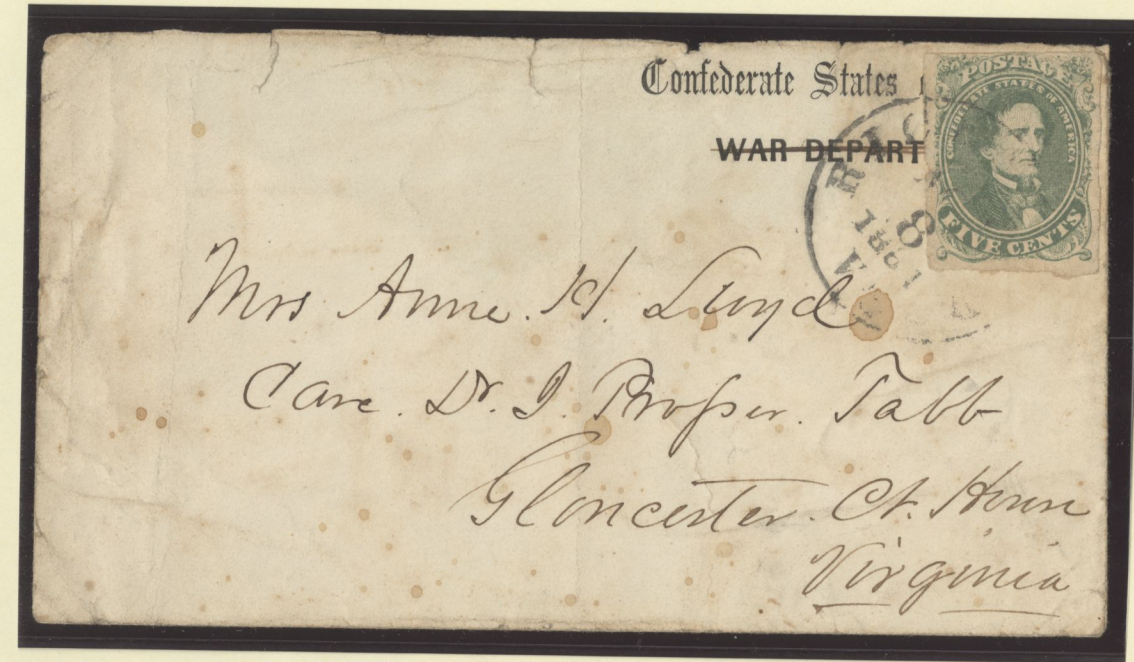 Confederate States
WAR DEPART
POSTAGE
CONFEDERATE STATES OF AMERICA
FIVE CENTS
RIC
8
1861
VA
Mrs Anne. H. Lloyd
Care. Dr. J. Prosser. Tabb
Gloucester. Ct. House
Virginia